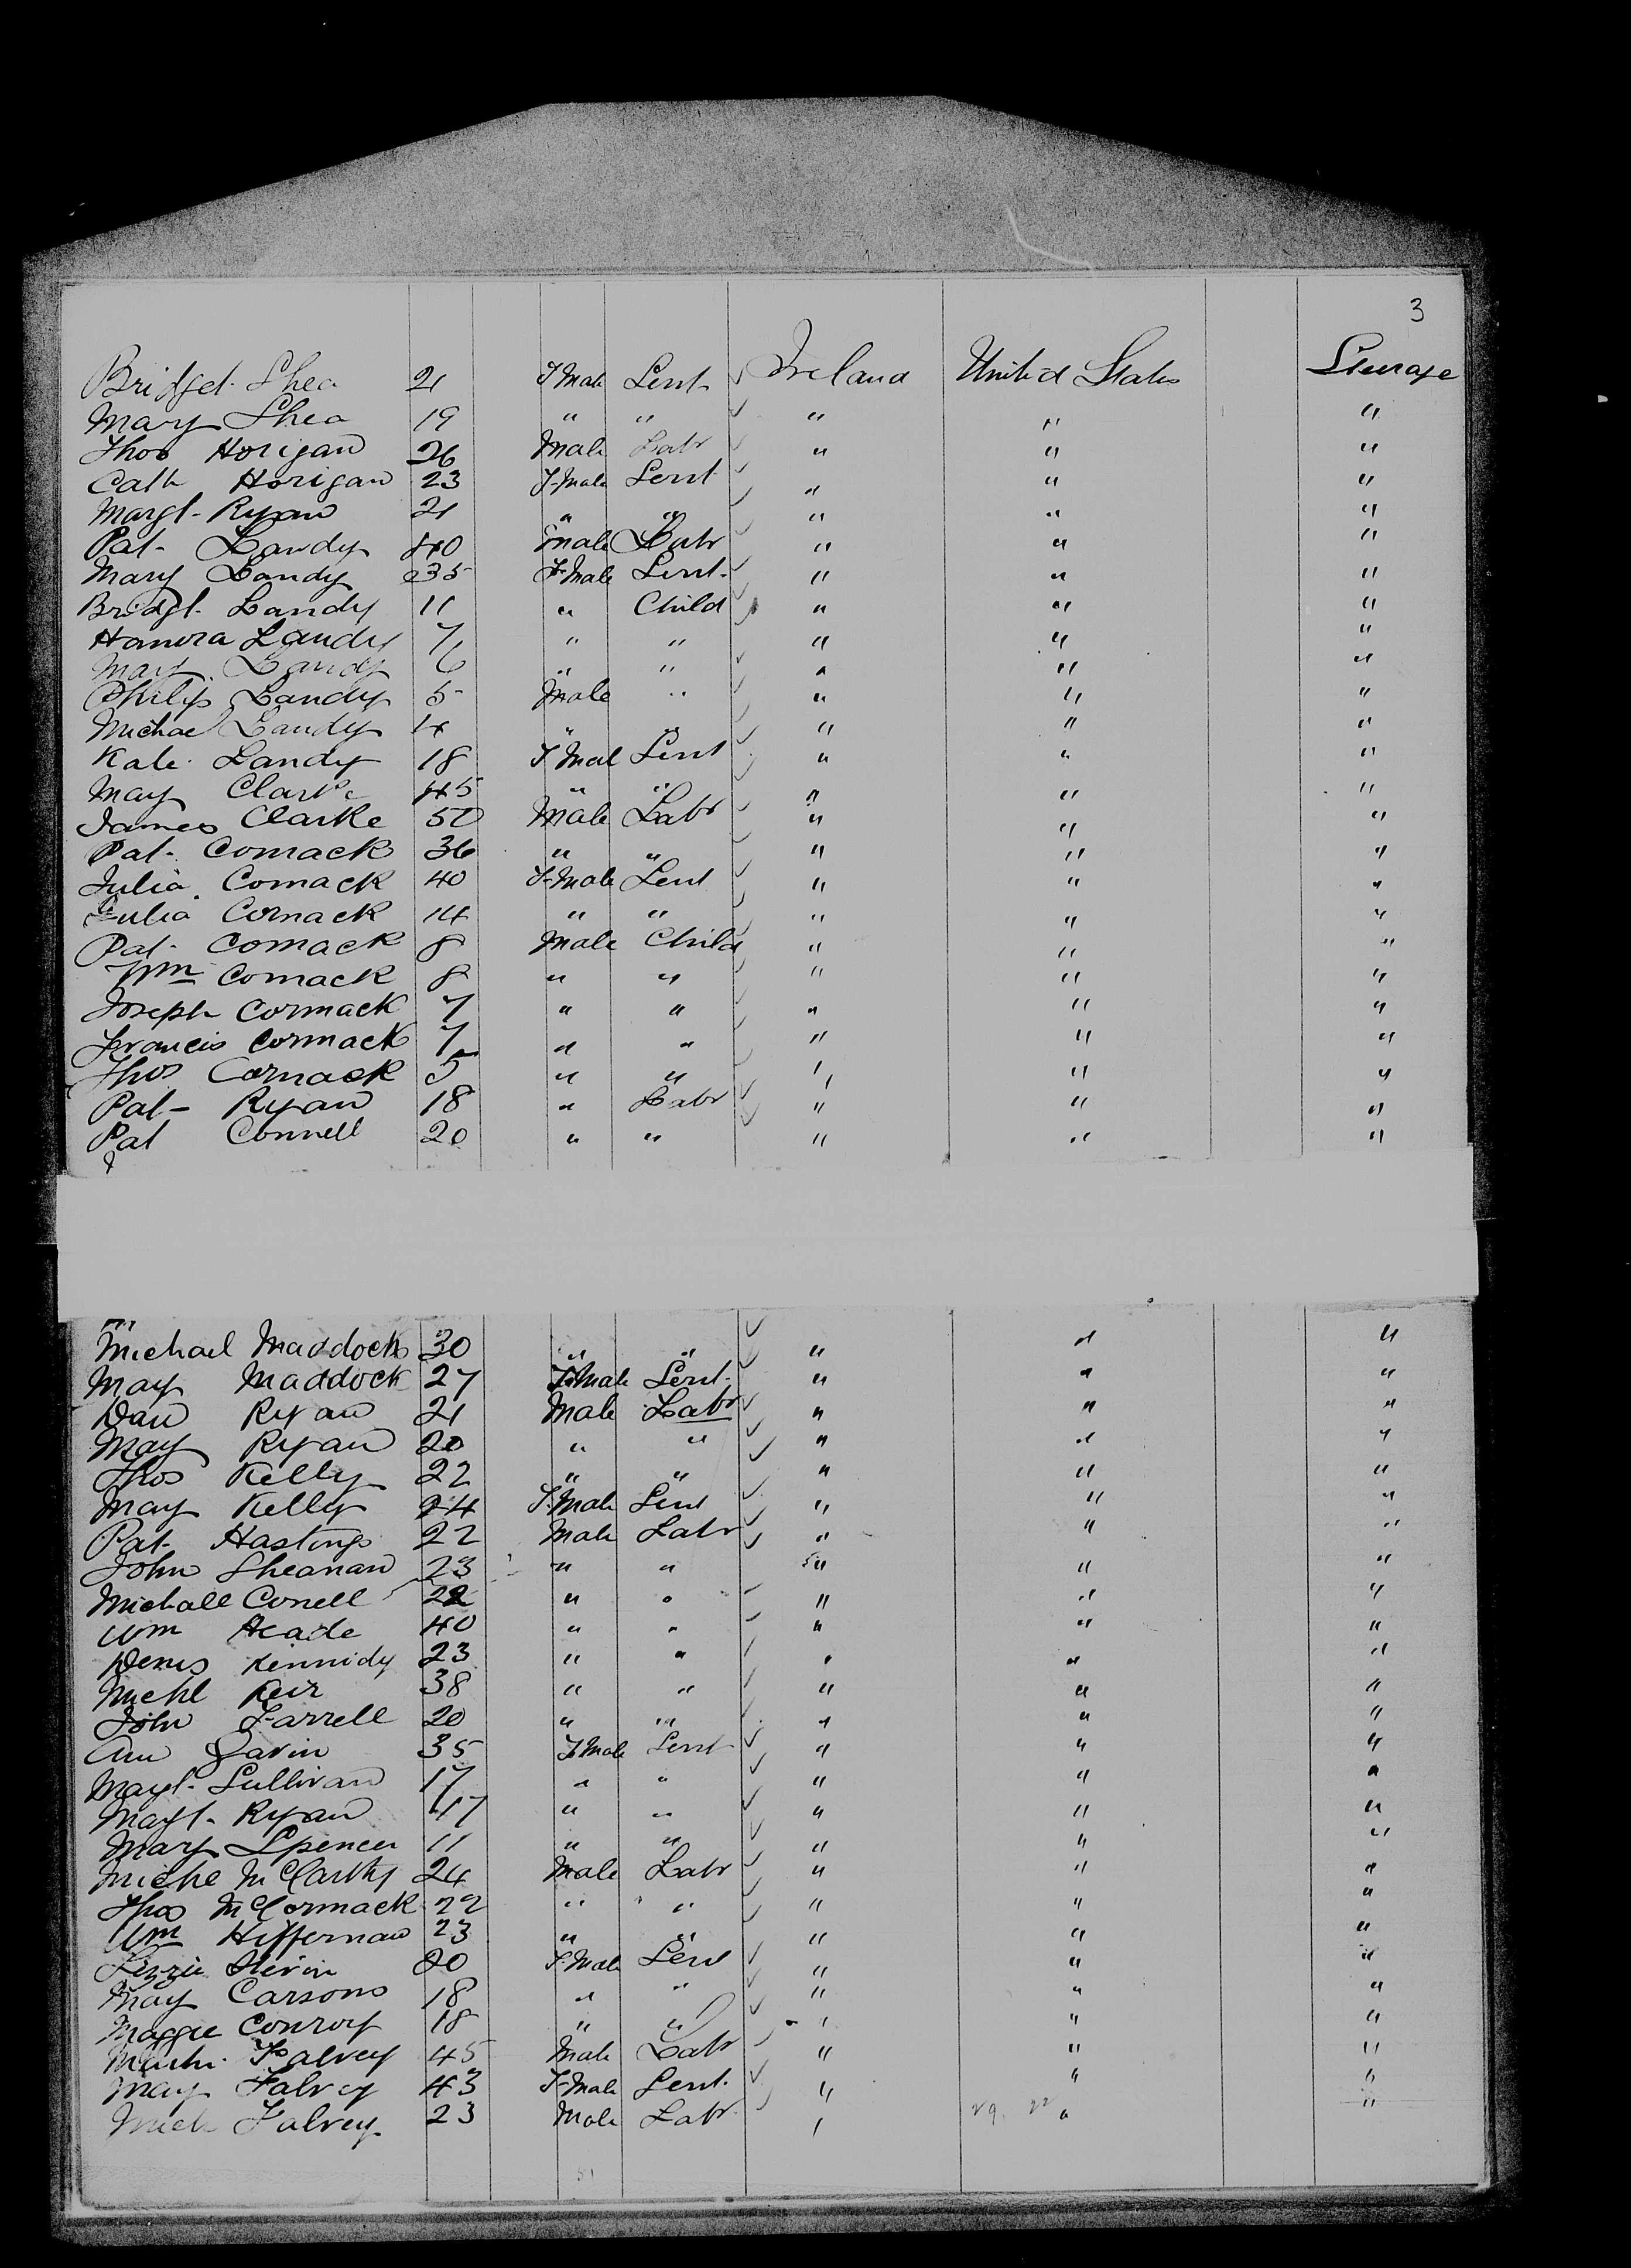 3
Bridget Shea 21 F Male Servt Ireland United States Steerage
Mary Shea 19 " " " " "
Thos Horigan 26 Male Labr " " "
Cath Horigan 23 F-Male Servt " " "
Margt- Ryan 21 " " " " "
Pat- Landy 40 Male Labr " " "
Mary Landy 35 F-Male Servt- " " "
Bridgt- Landy 11 " Child " " "
Honora Landy 7 " " " " "
Mary Landy 6 " " " " "
Philip Landy 5 Male " " " "
Michael Landy 4 " " " " "
Kate Landy 18 F Mal Servt " " "
Mary Clarke 45 " " " " "
James Clarke 50 Male Labr " " "
Pat- Comack 36 " " " " "
Julia Comack 40 F-Male Servt " " "
Julia Comack 14 " " " " "
Pat- Comack 8 Male Child " " "
Wm Comack 8 " " " " "
Joseph Cormack 7 " " " " "
Francis Cormack 7 " " " " "
Thos Cormack 5 " " " " "
Pat- Ryan 18 " Labr " " "
Pat Connell 20 " " " " "
Michael Maddock 30 " " " " "
May Maddock 27 F-Male Servt- " " "
Dan Ryan 21 Male Labr " " "
May Ryan 20 " " " " "
Thos Kelly 22 " " " " "
May Kelly 24 F-Male Servt " " "
Pat- Hastings 22 Male Labr " " "
John Sheanan 23 " " " " "
Michall Conell 22 " " " " "
Wm 40 " " " " "
Denis Kennidy 23 " " " " "
Michl Keir 38 " " " " "
John Farrell 20 " " " " "
Ann Gavin 35 F-Male Servt " " "
Magt- Sullivan 17 " " " " "
Magt- Ryan 17 " " " " "
Mary Spencer 11 " " " " "
Miche McCarthy 24 Male Labr " " "
Thos McCormack 22 " " " " "
Wm Hiffernan 23 " " " " "
Lizzie 20 F-Male Servt " " "
May Carsons 18 " " " " "
Maggie Conroy 18 " " " " "
Falvey 45 Male Labr " " "
May Falvey 43 F-Male Servt. " " "
Mich Falvey 23 Male Labr " " "